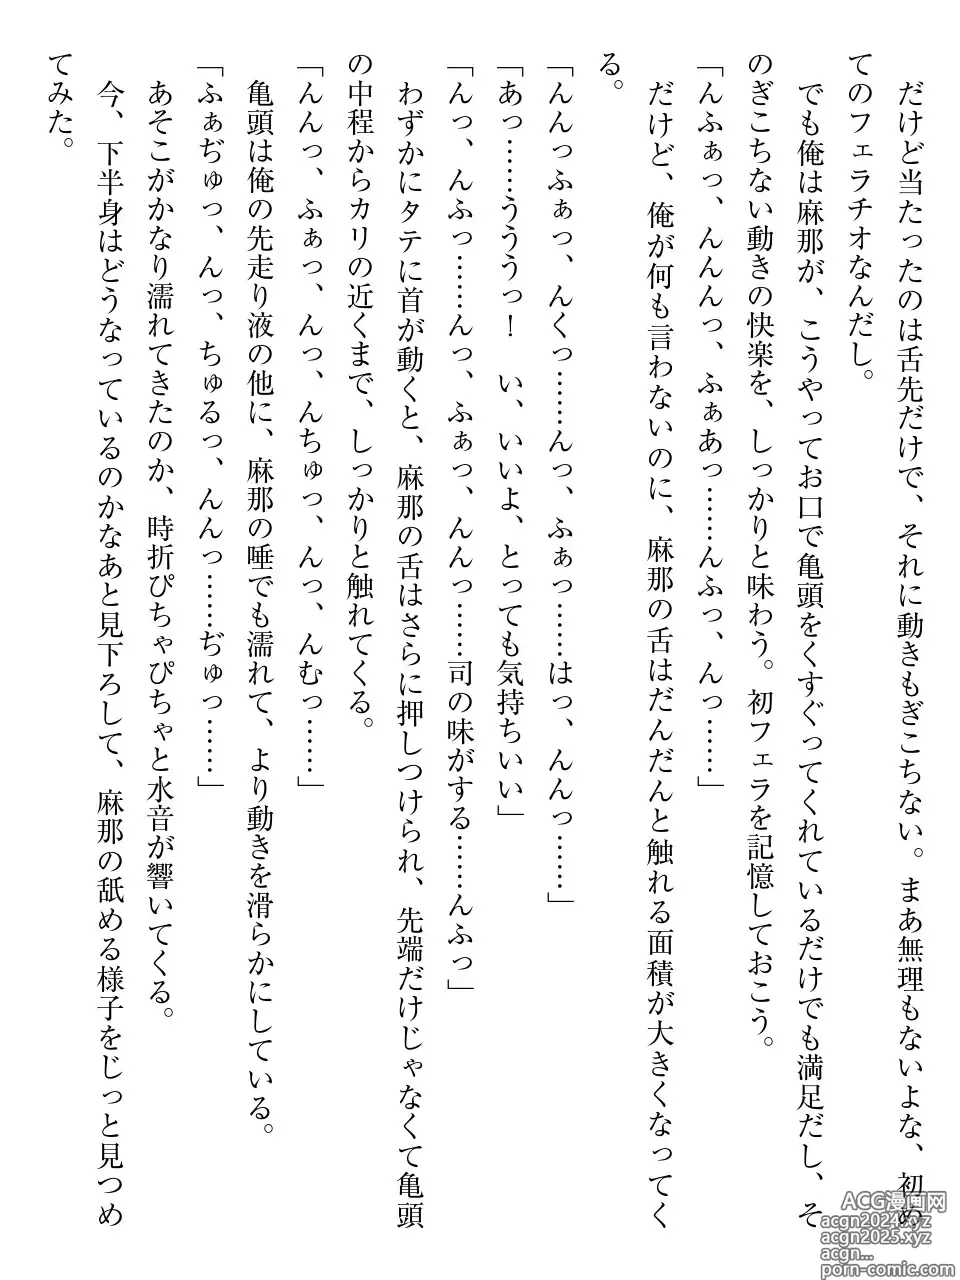 だけど当たったのは舌先だけで、それに動きもぎこちない。まあ無理もないよな、初め
てのフェラチオなんだし。
でも俺は麻那が、こうやってお口で亀頭をくすぐってくれているだけでも満足だし、そ
のぎこちない動きの快楽を、しっかりと味わう。初フェラを記憶しておこう。
「んふぁっ、んんんっ、ふぁあっ……んふっ、んっ……」
だけど、俺が何も言わないのに、麻那の舌はだんだんと触れる面積が大きくなってく
る。
「んんっふぁっ、んくっ……んっ、ふぁっ……はっ、んんっ……」
「あっ……ううっ！　い、いいよ、とっても気持ちいい」
「んっ、んふっ……んっ、ふぁっ、んんっ……司の味がする……んふっ」
わずかにタテに首が動くと、麻那の舌はさらに押しつけられ、先端だけじゃなくて亀頭
の中程からカリの近くまで、しっかりと触れてくる。
「んんっ、ふぁっ、んっ、んちゅっ、んっ、んむっ……」
亀頭は俺の先走り液の他に、麻那の唾でも濡れて、より動きを滑らかにしている。
「ふぁぢゅっ、んっ、ちゅるっ、んんっ……ぢゅっ……」
あそこがかなり濡れてきたのか、時折ぴちゃぴちゃと水音が響いてくる。
今、下半身はどうなっているのかなあと見下ろして、麻那の舐める様子をじっと見つめ
てみた。
ACG漫画网
acgn2024.xyz
acgn2025.xyz
acgn...
porn-comic.com